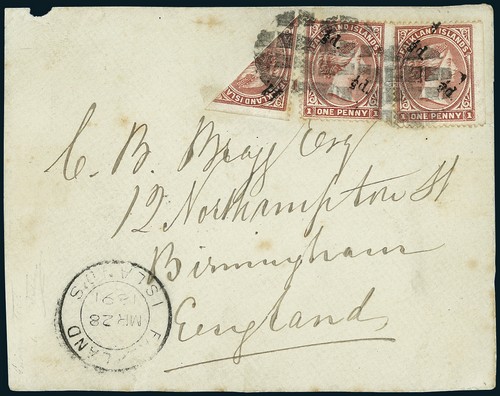 FALKLAND ISLANDS
½d.
½d.
ONE PENNY
FALKLAND ISLANDS
½d.
½d.
ONE PENNY
C. B. Bragg Esq
12 Northampton St
Birmingham
England
FALKLAND ISLANDS
MR 28
1891